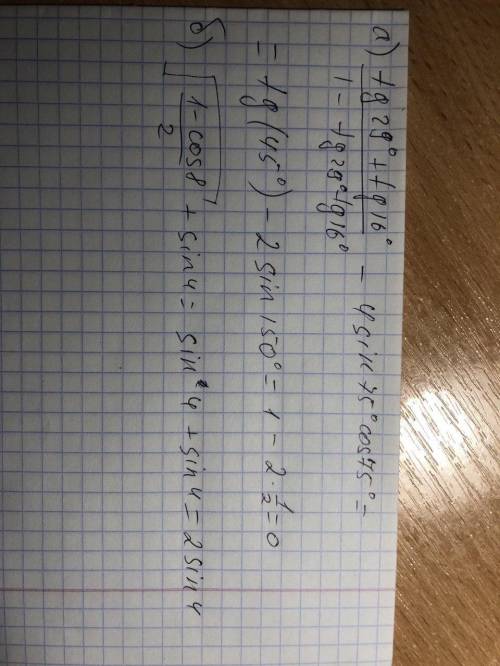 а) (tg29° + tg16°)/(1 - tg29°tg16°) - 4sin75°cos75° =
= tg(45°) - 2sin150° = 1 - 2·1/2 = 0
б) √((1-cos8)/2) + sin4 = sin4 + sin4 = 2sin4